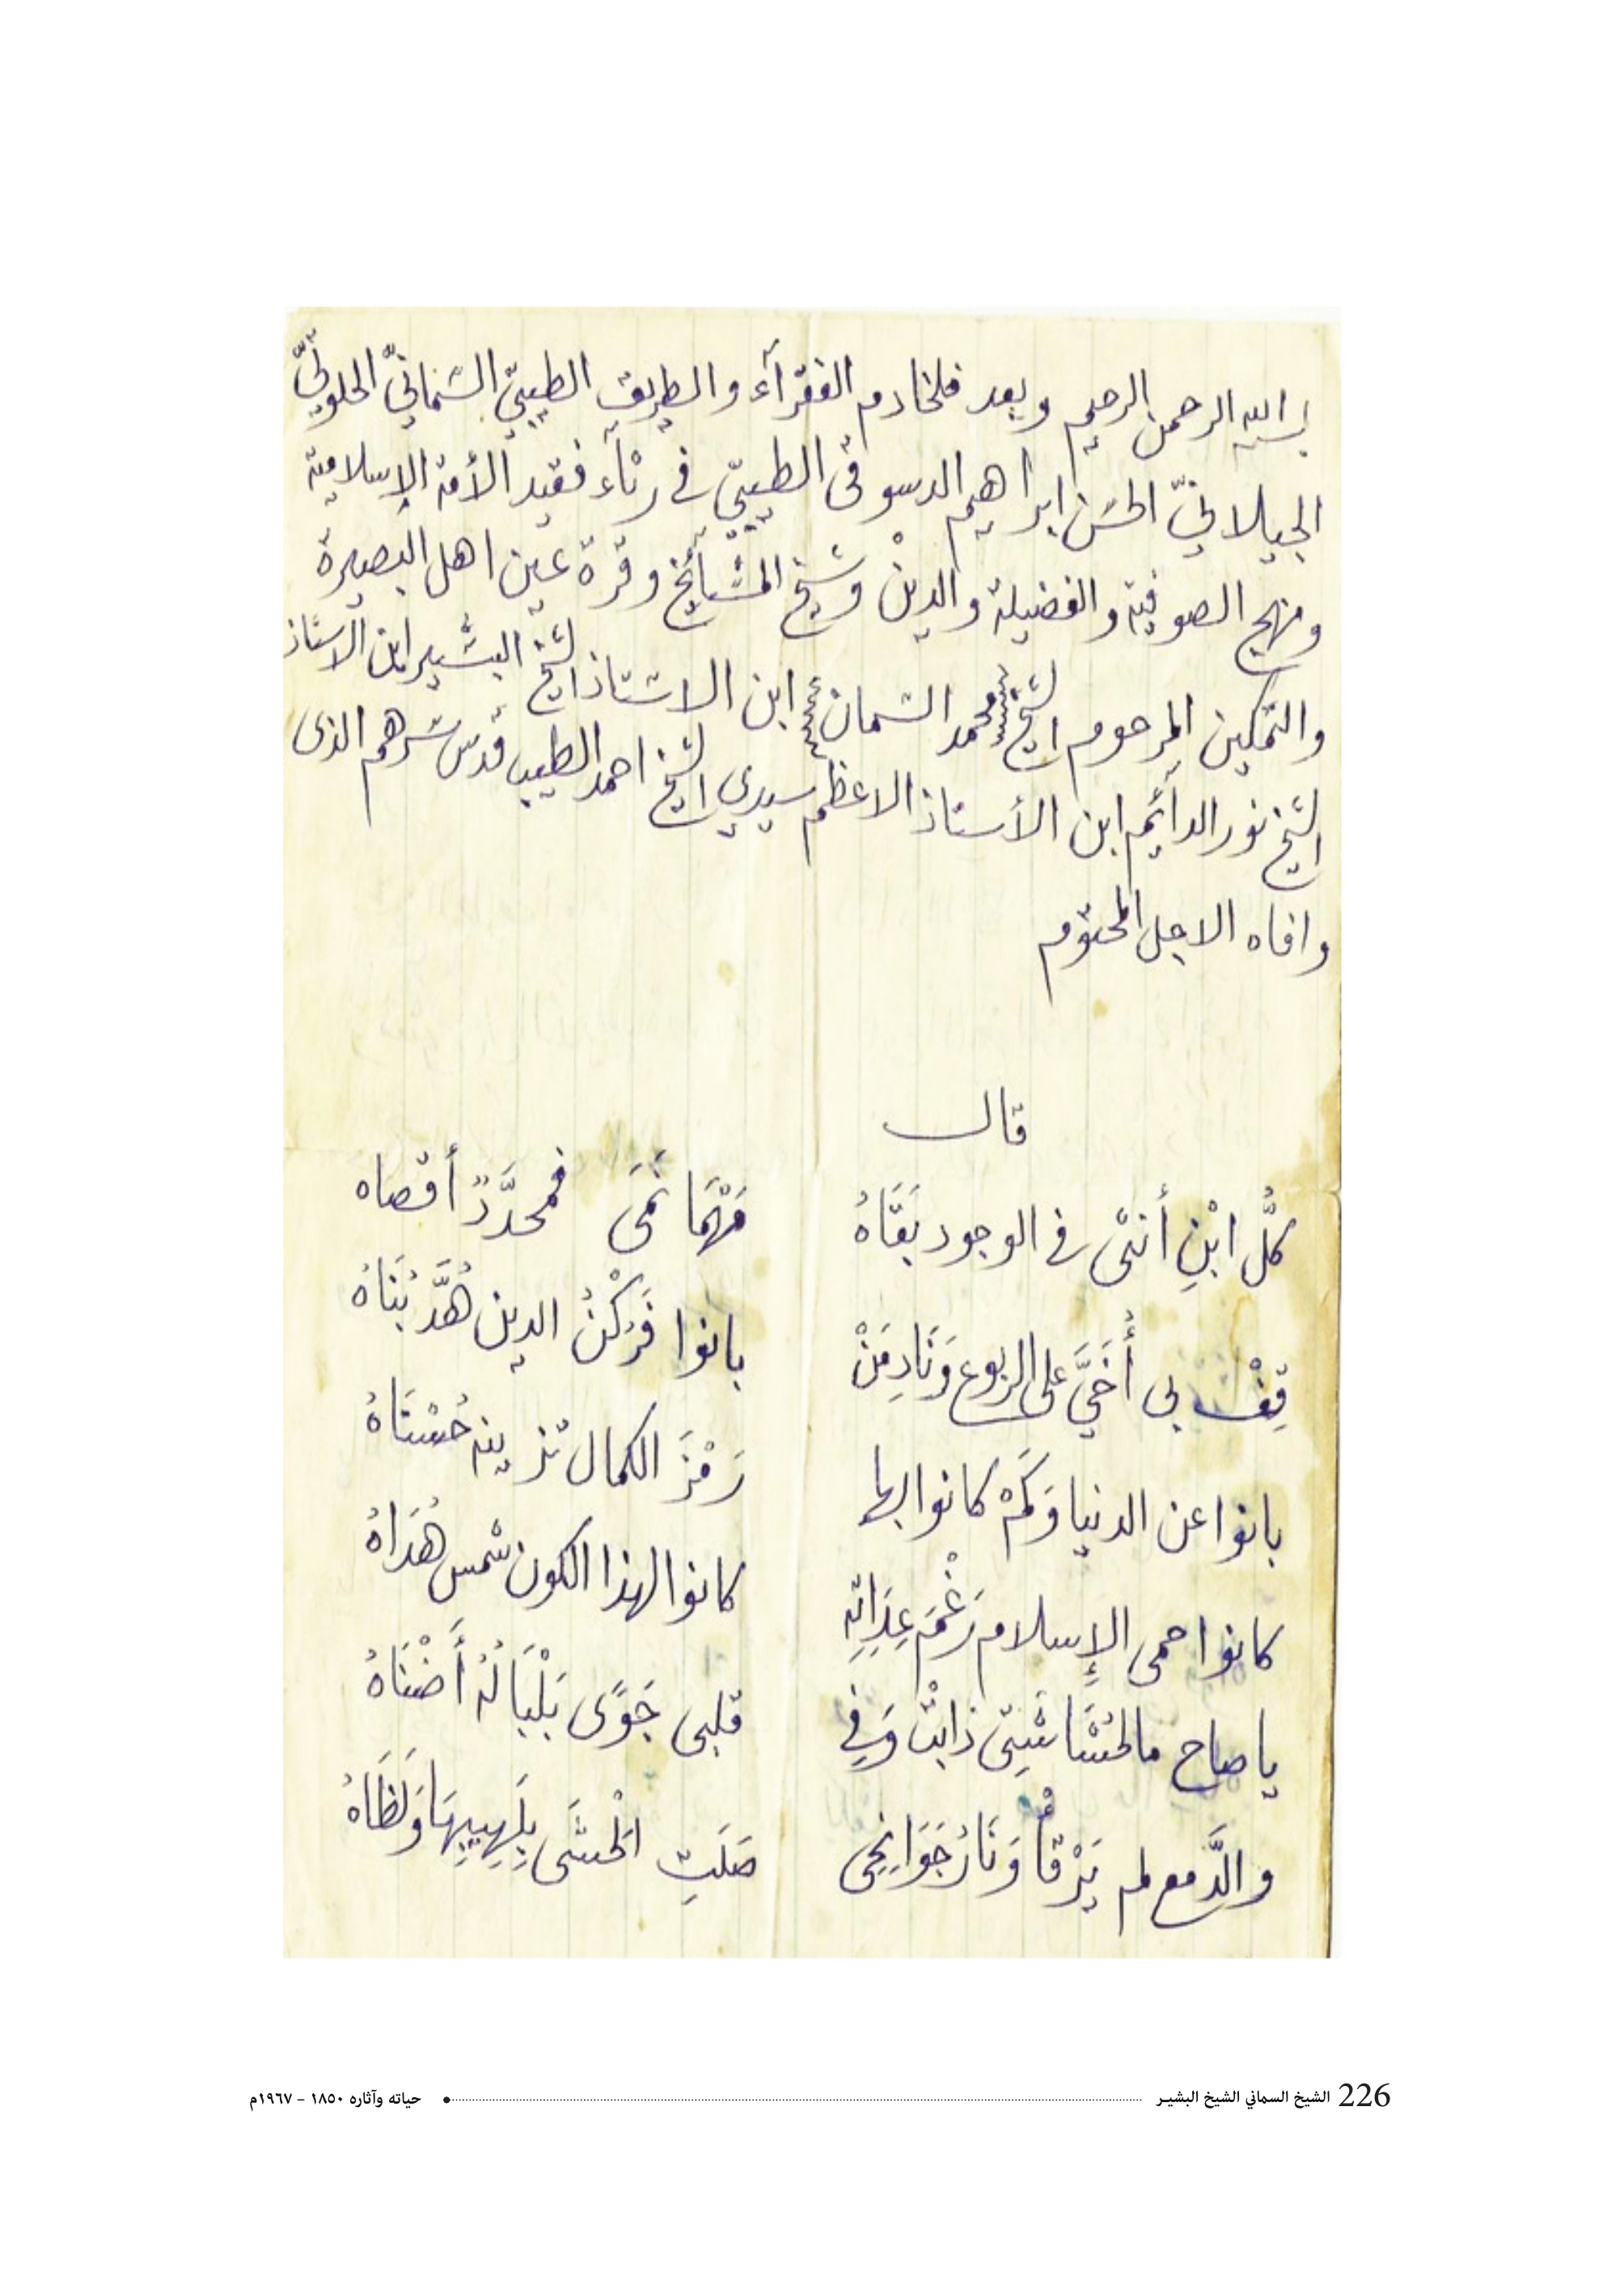 بسم الله الرحمن الرحيم وبعد فلخادم الفقرآء والطريق الطيبيّ السّمّانيّ الخلوتيّ
الجيلانيّ الحسن ابراهيم الدسوقى الطيبيّ في رثآء فقيد الأمة الإسلامية
ومنهج الصوفية والفضيلة والدين وشيخ المشآئخ وقرة عين اهل البصيرة
والتمكين المرحوم الشيخ محمد السمان ابن الاستاذ الشيخ البشير ابن الاستاذ
الشيخ نور الدائم ابن الأستاذ الاعظم سيدي الشيخ احمد الطيب قدس سرهم الذى
وافاه الاجل المحتوم
قال
كلُّ ابْنِ أنثى في الوجود بَقَاهُ مَهْمَا نَمَى فمحدَّدٌ أقصاه
قِفْ بي أُخَيَّ على الربوع وَنَادِ مَنْ بانوا فَرُكْنُ الدين هُدَّ بُنَاهُ
بانوا عن الدنيا وَكَمْ كانوا بها رَمْزَ الكمال تزينه حُسْنَاهُ
كانوا حمى الإسلام رَغْمَ عِدَاتِهِ كانوا لهذا الكون شمس هُدَاهُ
يا صاح مالحُشَاشَتِى ذابتْ وَفِي قلبى جَوًى بَلْبَالُهُ أَضْنَاهُ
والدَّمع لم يَرْقأْ وَنَارُ جَوَانِحِى صَلَتِ الْحَشَى بِلَهِيبِهَا وَلَظَاهُ
226 الشيخ السماني الشيخ البشيـر حياته وآثاره ١٨٥٠ - ١٩٦٧م